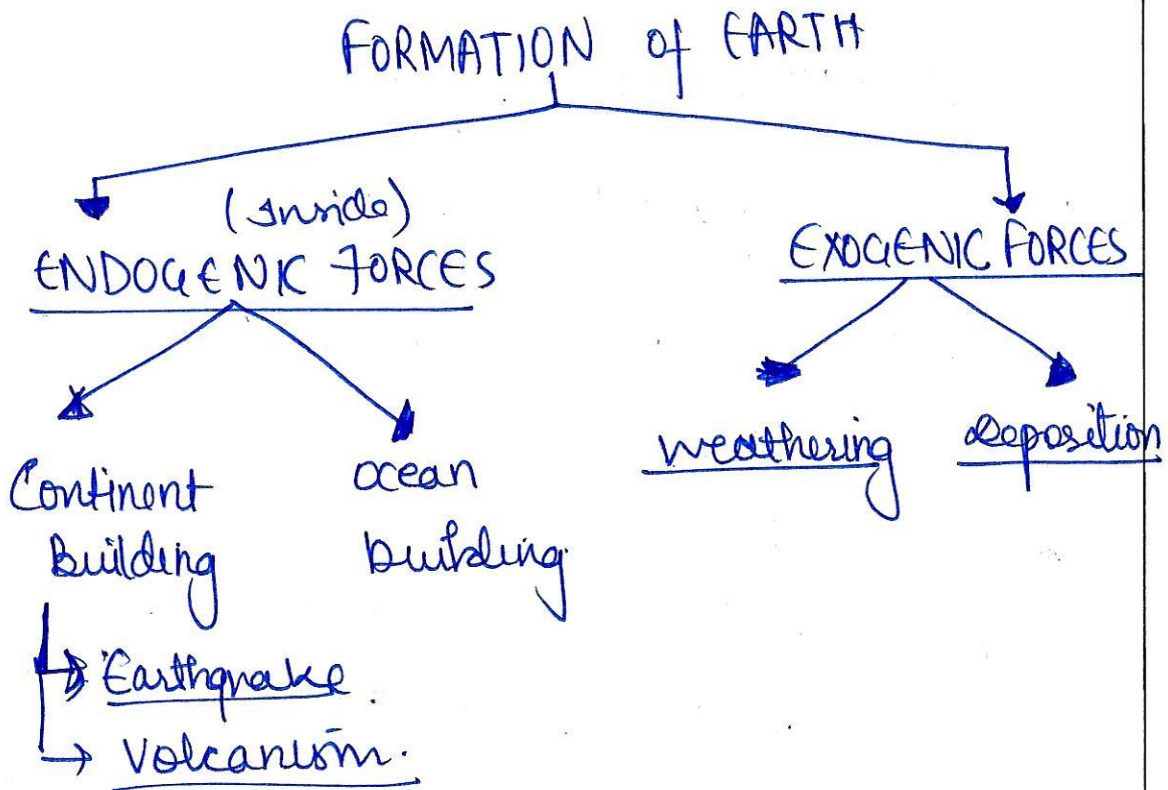 FORMATION of EARTH
(Inside)
ENDOGENIC FORCES
EXOGENIC FORCES
Continent
Building
ocean
building
weathering
Deposition
Earthquake.
Volcanism.